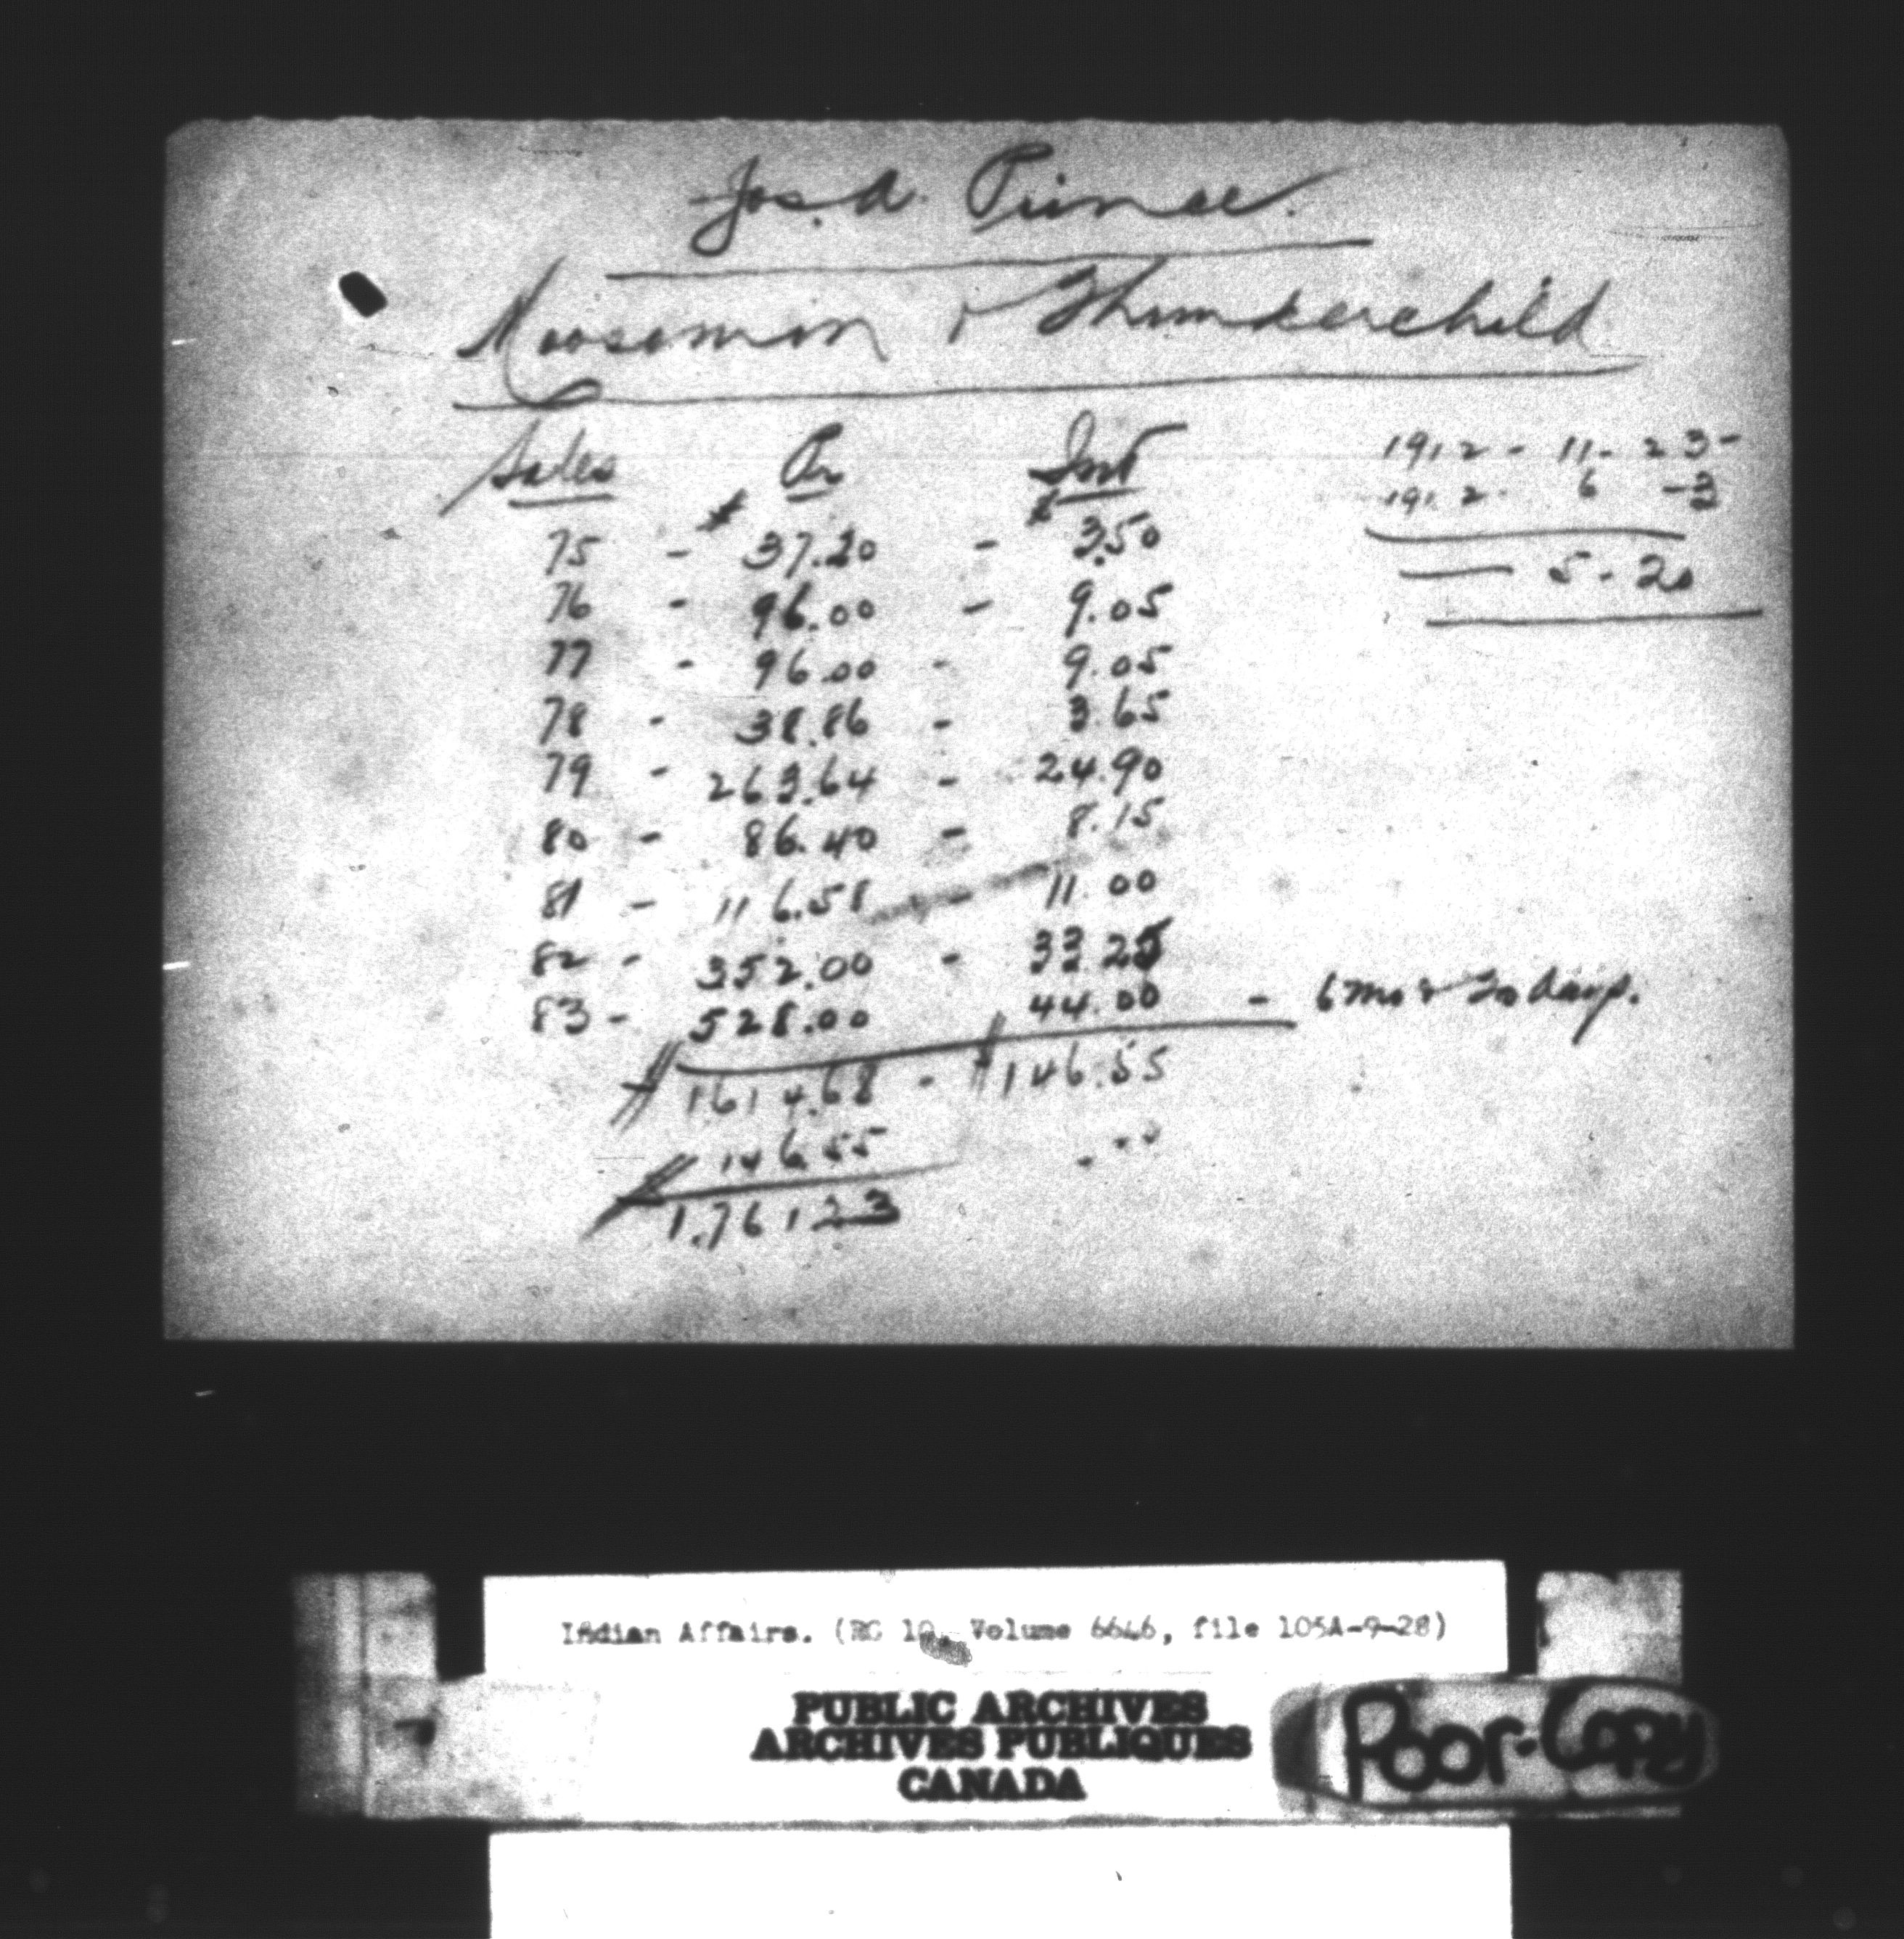 Jos. A. Prince.
Moosomin & Thunderchild
Sales Pr Int
75 - $ 37.20 - $ 3.50
76 - 96.00 - 9.05
77 - 96.00 - 9.05
78 - 38.86 - 3.65
79 - 263.64 - 24.90
80 - 86.40 - 8.15
81 - 116.58 - 11.00
82 - 352.00 - 33.25
83 - 528.00 44.00 - 6 mos & 20 days.
$ 1614.68 - $ 146.55
146.55
$ 1.761 23
1912 - 11 - 23 -
1912 - 6 - 3
5 - 20
Indian Affairs. (RG 10, Volume 6646, file 105A-9-28)
PUBLIC ARCHIVES
ARCHIVES PUBLIQUES
CANADA
Poor-Copy